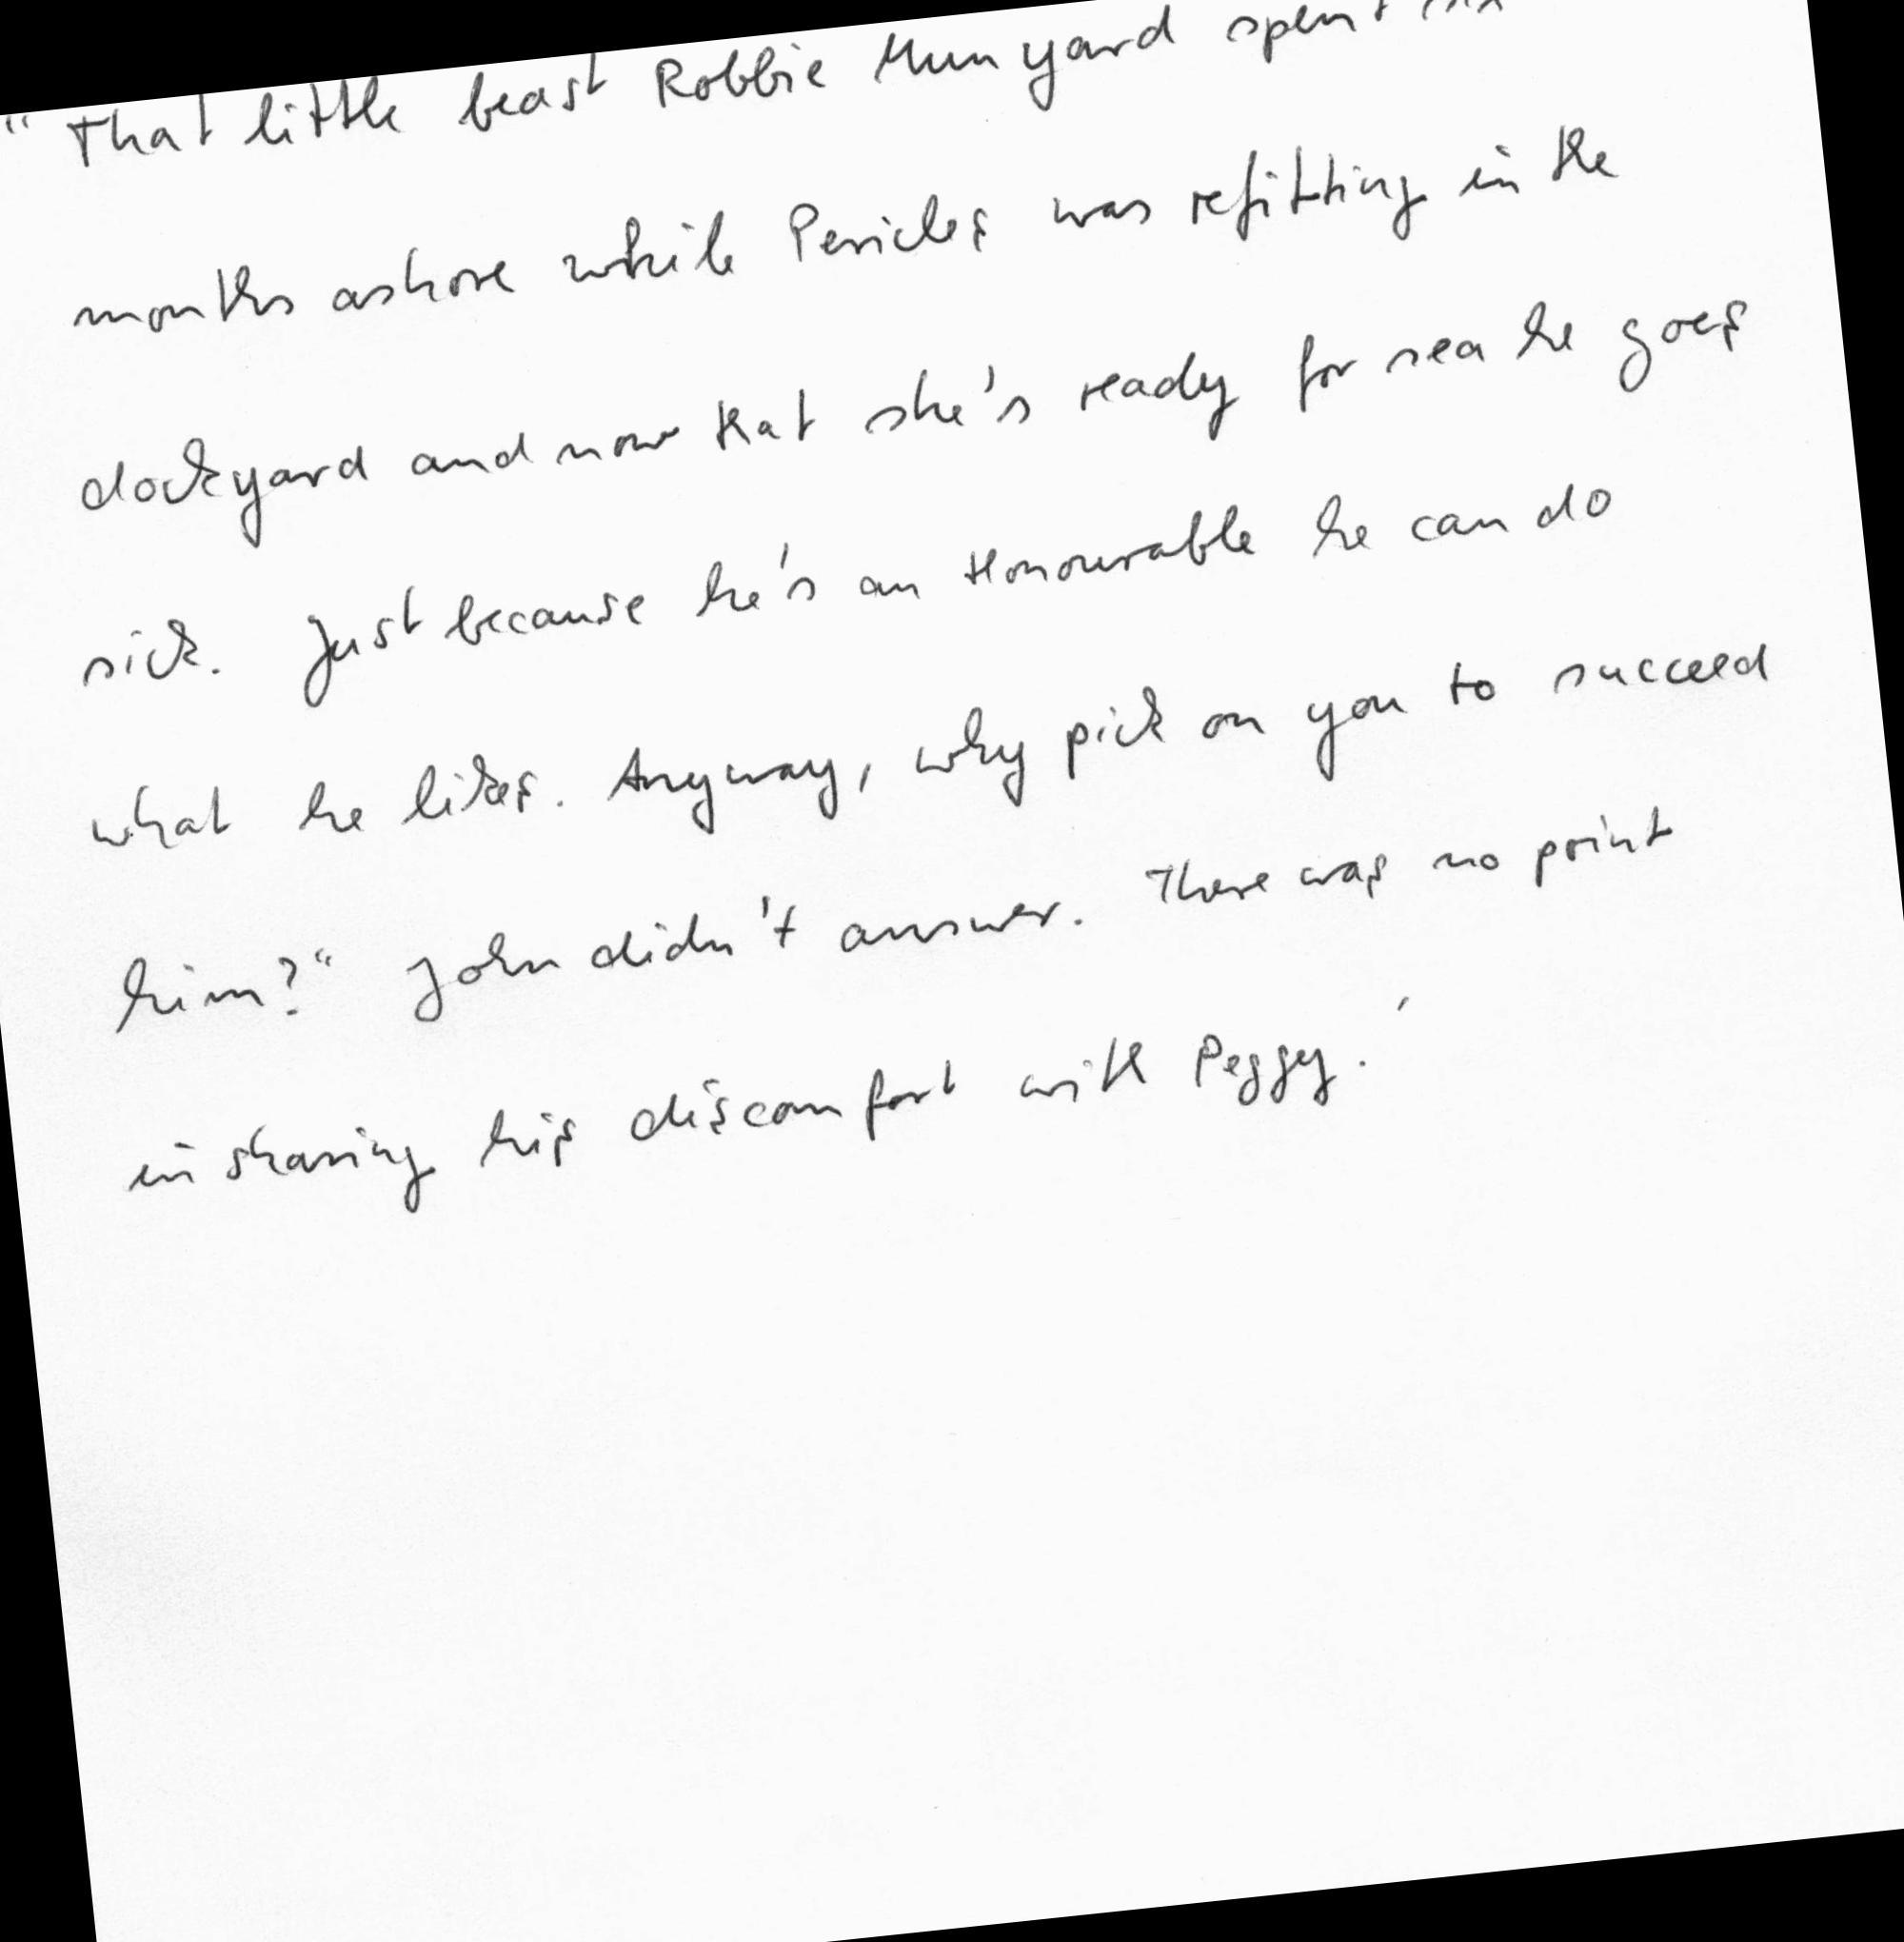 "That little beast Robbie Munyard spent
months ashore while Pericles was refitting in the
dockyard and now that she's ready for sea he goes
sick. Just because he's an Honourable he can do
what he likes. Anyway, why pick on you to succeed
him?" John didn't answer. There was no point
in sharing his discomfort with Peggy.